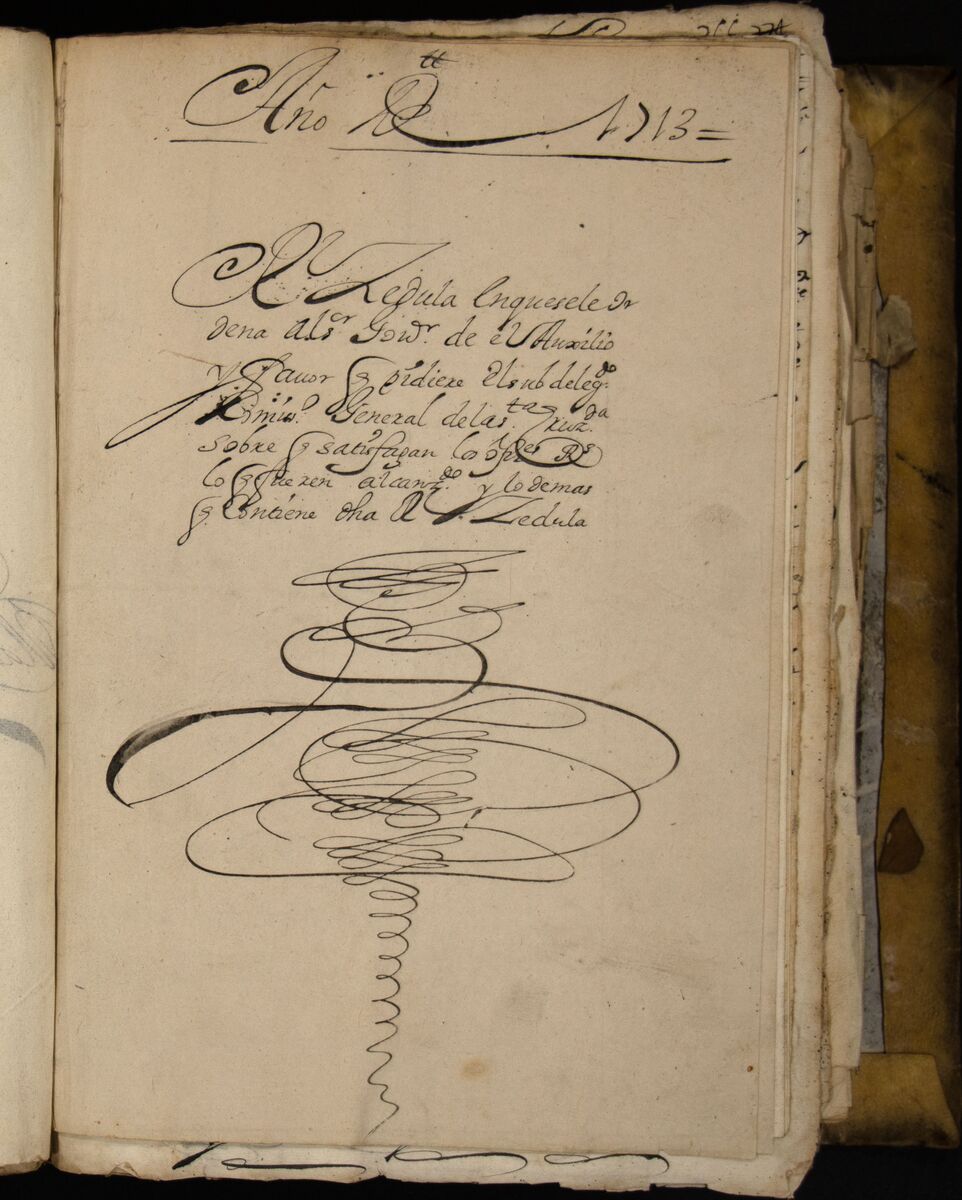 Año de 1713=
Rl Zedula Enquesele or
dena als.or Gov.or de el Auxilio
y favor q pidiere el subdeleg.do
Comis.o General de la s.ta Cruz.da
sobre q satisfagan los
lo q fueren alcanz.do y lo demas
q Contiene dha Rl Zedula